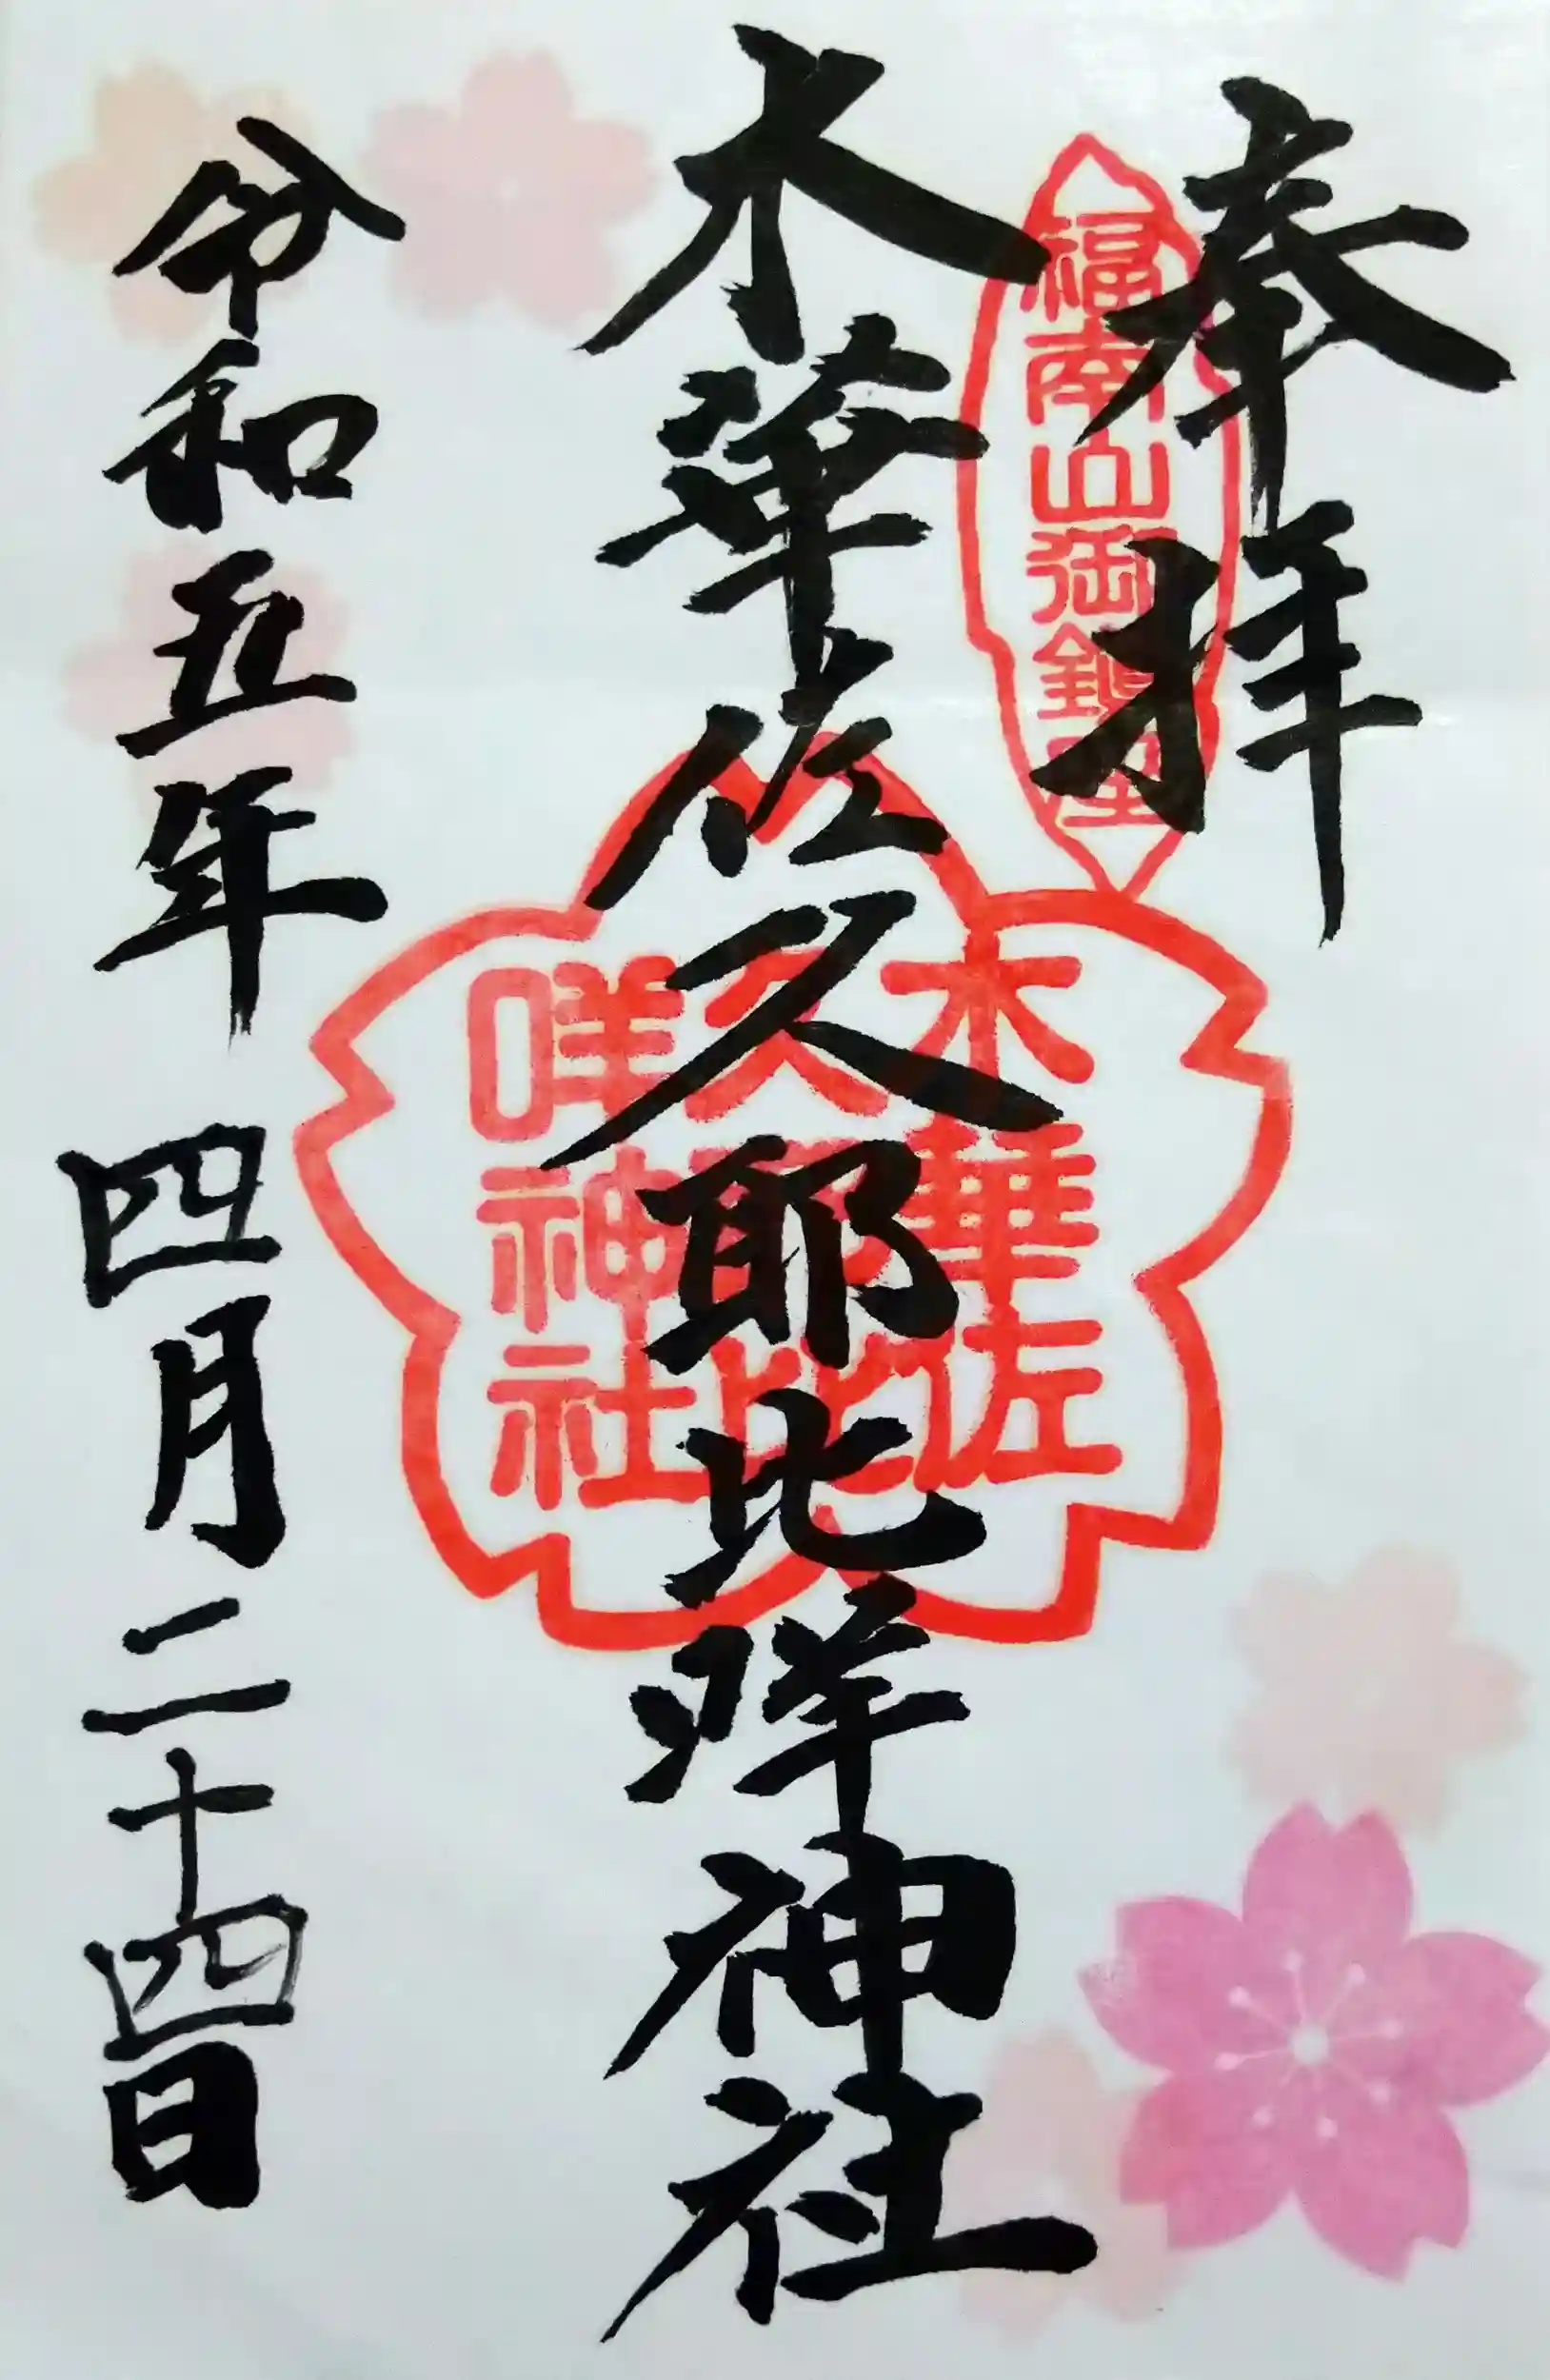 奉拝
福南山御鎮座
木華佐久耶比咩神社
木華佐
久耶比
咩神社
令和五年四月二十四日